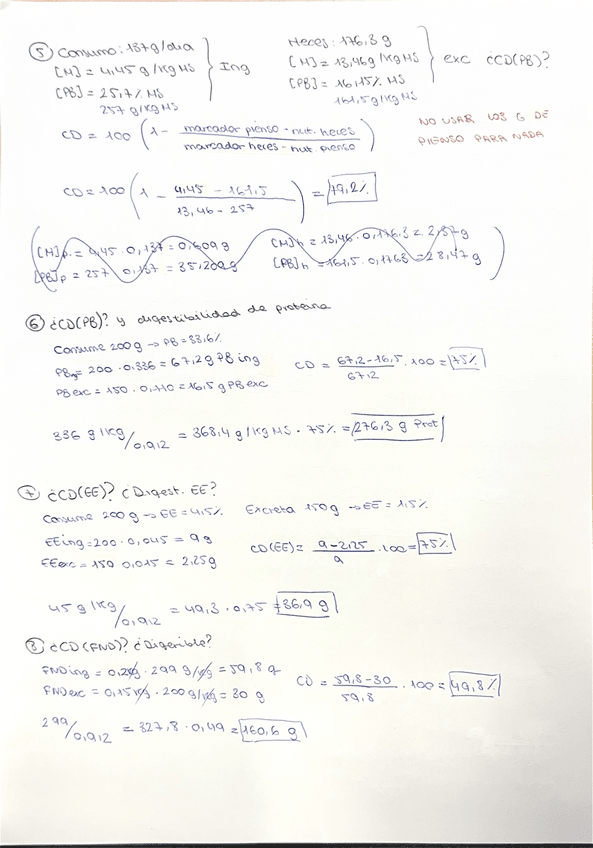 ⑤ Consumo: 137g/dia
[M] = 4,45 g/Kg MS
[PB] = 25,7% MS
257 g/Kg MS
Ing
Heces: 176,3 g
[M] = 13,46g/Kg MS
[PB] = 16,15% MS
161,5g/Kg MS
exc ¿CD(PB)?
NO USAR LOS G DE
PIENSO PARA NADA
CD = 100 (1 - marcador pienso - nut. heces / marcador heces - nut. pienso)
CD = 100 (1 - 4,45 - 161,5 / 13,46 - 257) = 79,2%
[M]p = 4,45 · 0,137 = 0,609 g
[PB]p = 257 · 0,137 = 35,209g
[M]h = 13,46 · 0,176.3 = 2,37g
[PB]h = 161,5 · 0,1763 = 28,47 g
⑥ ¿CD(PB)? y digestibilidad de proteina
Consume 200g → PB = 33,6%
PBing = 200 · 0,336 = 67,2g PB ing
PBexc = 150 · 0,110 = 16,5 g PB exc
CD = 67,2 - 16,5 / 67,2 · 100 = 75%
336 g/Kg / 0,912 = 368,4 g/Kg MS · 75% = 276,3 g Prot
⑦ ¿CD(EE)? ¿Digest. EE?
Consume 200 g → EE = 4,5%
Excreta 150g → EE = 1,5%
EEing = 200 · 0,045 = 9g
EEexc = 150 · 0,015 = 2,25g
CD(EE) = 9 - 2,25 / 9 · 100 = 75%
45 g/Kg / 0,912 = 49,3 · 0,75 = 36,9 g
⑧ ¿CD(FND)? ¿Digerible?
FNDing = 0,2Kg · 299 g/Kg = 59,8 g
FNDexc = 0,15Kg · 200g/Kg = 30 g
CD = 59,8 - 30 / 59,8 · 100 = 49,8%
299 / 0,912 = 327,8 · 0,49 = 160,6 g